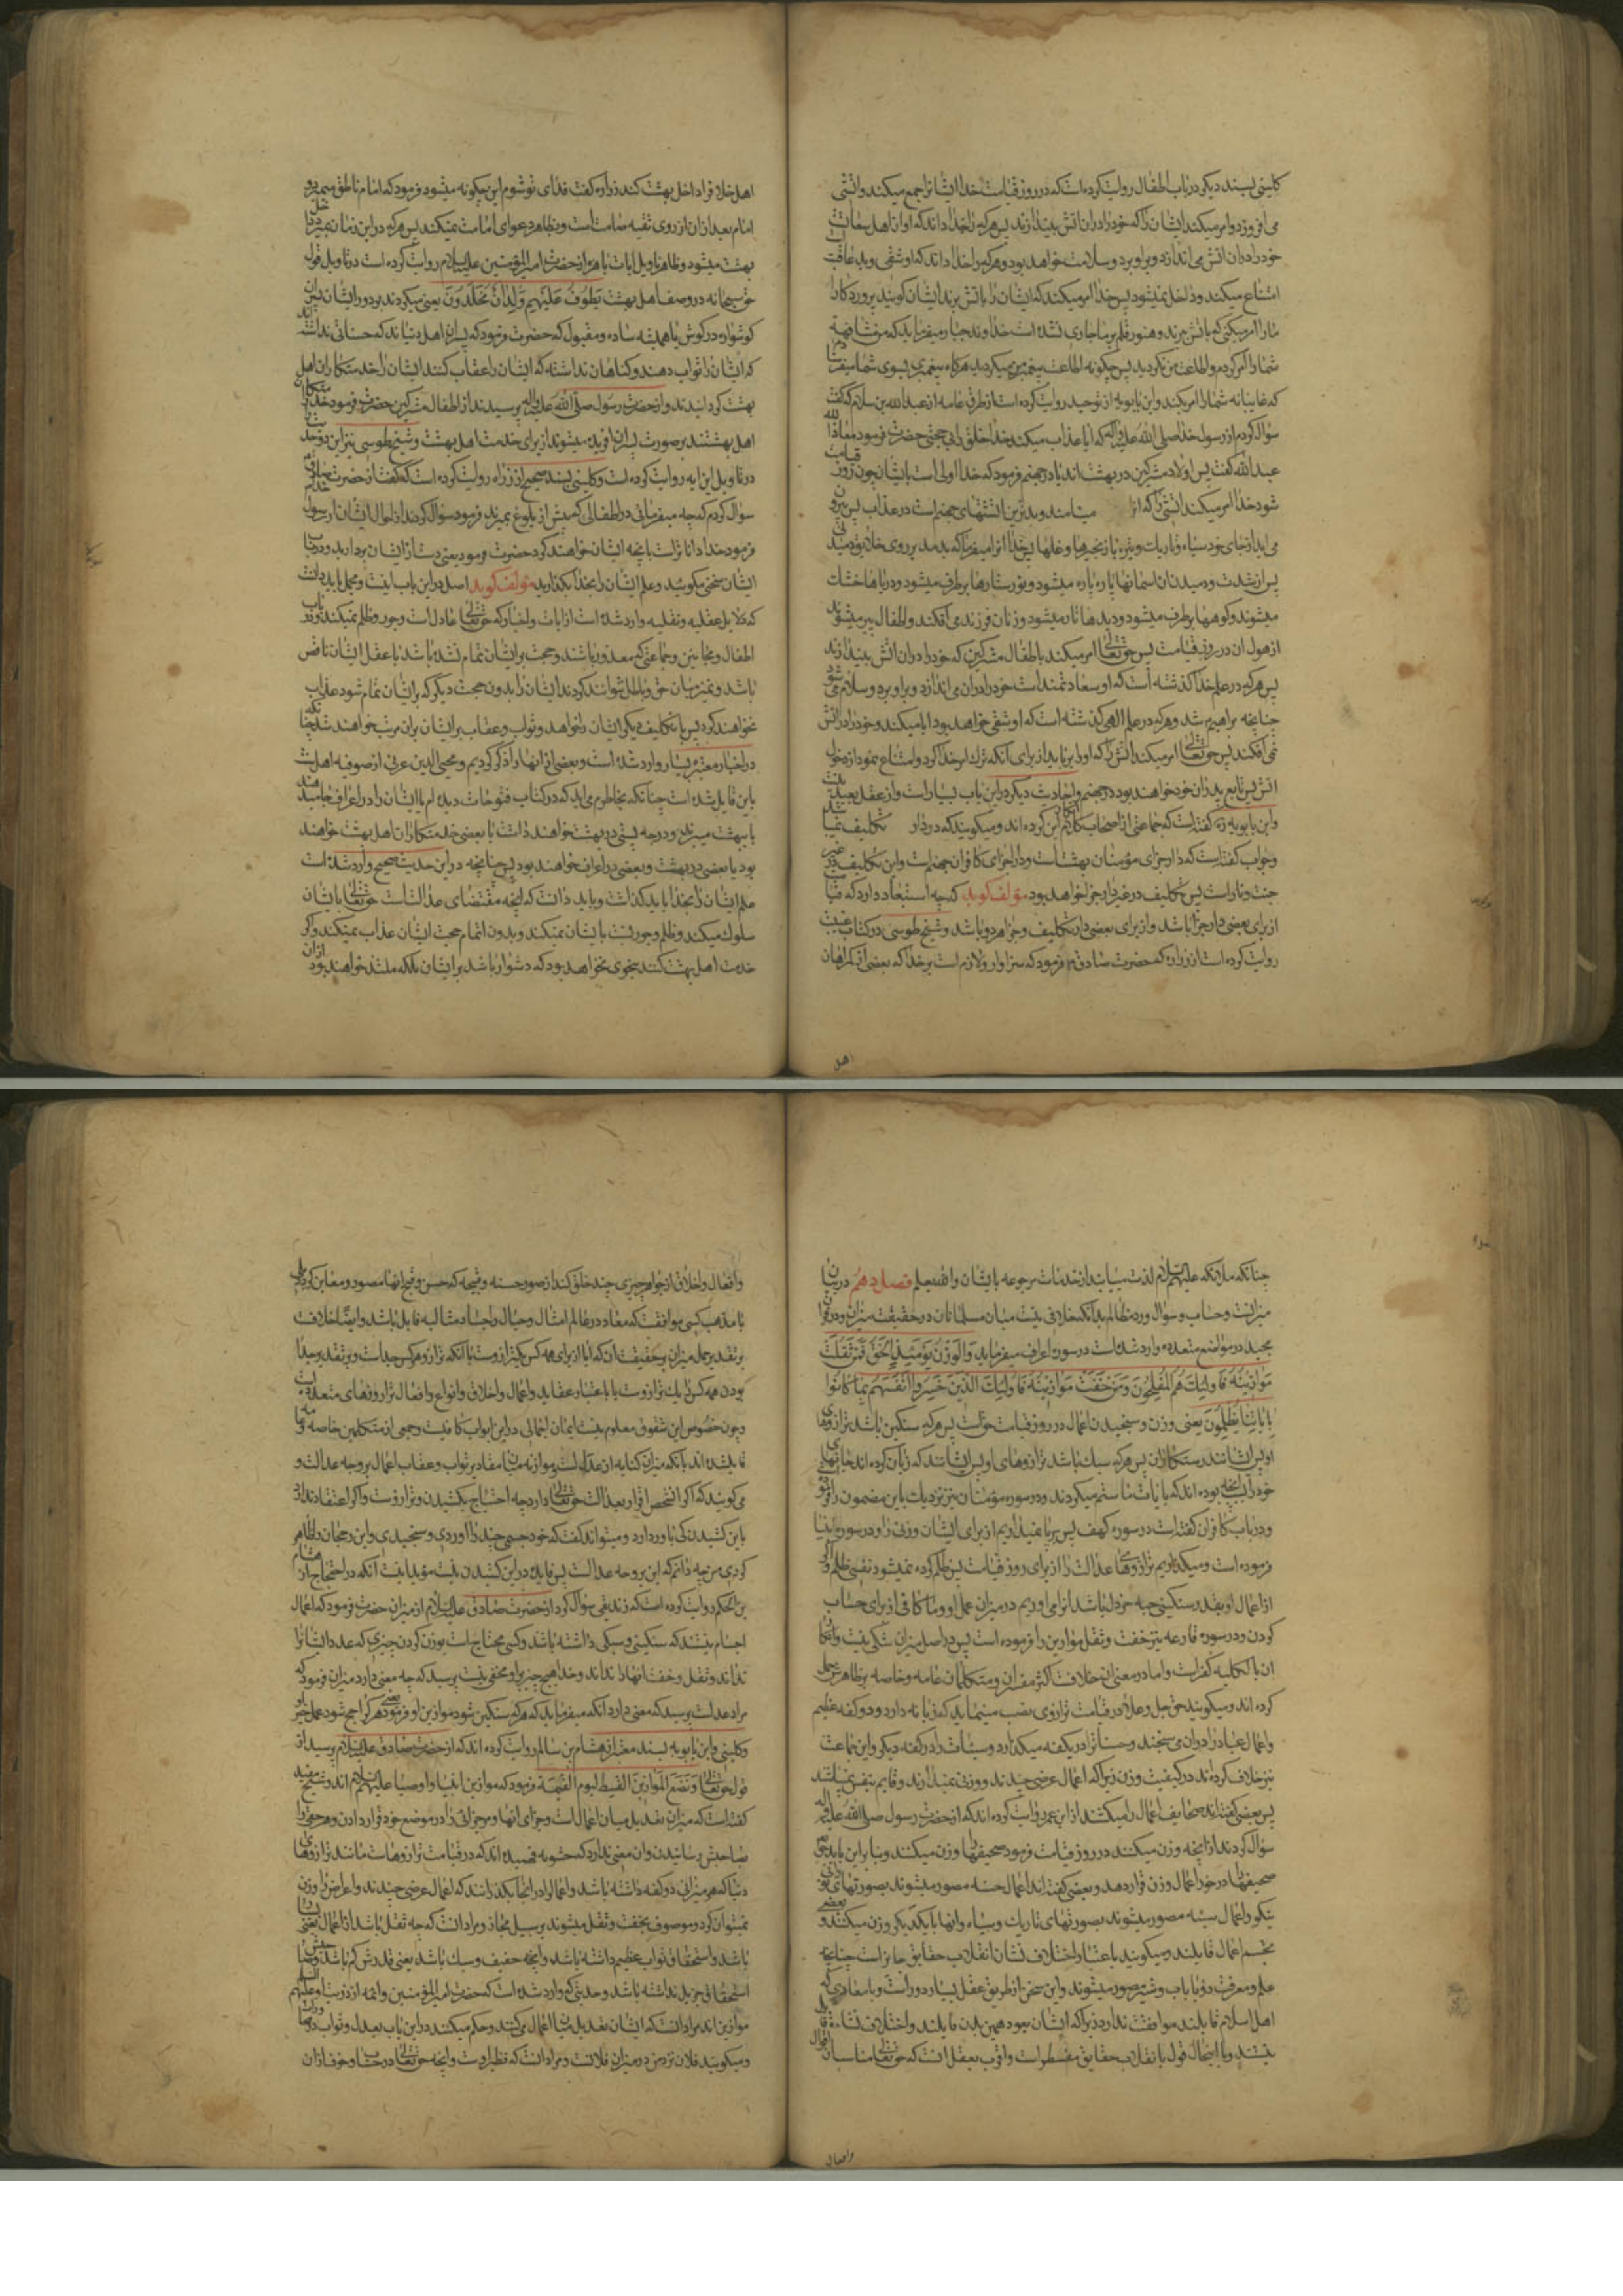 کلینی بسند دیگر در باب اطفال روایت کرده است که در روز قیامت خدا ایشانرا جمع میکند و اتشی
می افروزد و امر میکند ایشان را که خود را در ان اتش بیندازند پس هرکه را خدا داند که او از اهل سعادت
خود را در ان اتش می اندازد و بر او برد و سلامت خواهد بود و هرکه را خدا داند که او شقی و بد عاقبت
امتناع میکند و داخل نمیشود پس خدا امر میکند که ایشان را باتش برند ایشان کویند پروردکارا
ما را امر میکنی که باتش برند و هنوز قلم بر ما جاری نشده است خداوند جبار میفرماید که من مشافهة
شما را امر کردم و اطاعت من نکردید پس چکونه اطاعت پیغمبر من میکردید هرکاه پیغمبری بسوی شما میفرستادم
که غایبانه شما را امر بکند و ابن بابویه از توحید روایت کرده است از طرق عامه از عبدالله بن سلام که کفت
سؤال کردم از رسول خدا صلی الله علیه واله که ایا عذاب میکند خدا خلق را بی حجتی حضرت فرمود معاذ الله
عبدالله کفت پس اولاد مشرکین در بهشت اند یا در جهنم فرمود که خدا اولی است بایشان چون روز قیامت
شود خدا امر میکند اتشی را که انرا مینامند و بدترین اتشهای جهنم است در عذاب پس بیرون
می اید از جای خود سیاه و تاریک و تیره با زنجیرها و غلها پس خدا انرا میفرماید که بدمد بر روی خلایق دمیدنی
پس از شدت دمیدن ان اسمانها پاره پاره میشود و نور ستارها برطرف میشود و دریاها خشک
میشوند و کوهها برطرف میشود و دیدها تار میشود و زنان فرزند می افکند و اطفال پیر میشوند
از هول ان در روز قیامت پس حق تعالی امر میکند باطفال مشرکین که خود را در ان اتش بیندازند
پس هرکه در علم خدا کذشته است که او سعادتمند است خود را در ان می اندازد و بر او برد و سلام می شود
چنانچه بر ابراهیم شد و هرکه در علم الهی کذشته است که او شقی خواهد بود ابا میکند و خود را در اتش
نمی افکند پس حق تعالی امر میکند اتش را که او را برباید از برای آنکه ترک امر خدا کرد و امتناع نمود از دخول
اتش پس تابع پدران خود خواهند بود در جهنم و احادیث دیکر در این باب بسیار است و از عقل بعید نیست
و ابن بابویه ره کفته است که جماعتی از اصحاب کلام انکار این کرده اند و میکویند که در دار تکلیف نمیباشد
و جواب کفته است که دار جزای مؤمنان بهشت است و دار جزای کافران جهنم است و این تکلیف در غیر
جنت و نار است پس تکلیف در غیر دار جزا خواهد بود مؤلف کوید که چه استبعاد دارد که قیامت
از برای بعضی دار جزا باشد و از برای بعضی دار تکلیف و جزا هر دو باشد و شیخ طوسی در کتاب غیبت
روایت کرده است از زراره که حضرت صادق ع فرمود که سزاوار و لازم است بر خدا که بعضی از کمراهان
اهل
اهل خلاف را داخل بهشت کند زراره کفت فدای تو شوم این چکونه میشود فرمود که امام ناطق میمیرد و
امام بعد از ان از روی تقیه صامت است و بظاهر دعوای امامت نمیکند پس هرکه در این زمان بمیرد داخل
بهشت میشود و ظاهرا از حضرت امیر المؤمنین علیه السلام روایت کرده است در تاویل قول
حق سبحانه در وصف اهل بهشت یَطُوفُ عَلَیْهِمْ وِلْدَانٌ مُخَلَّدُونَ یعنی میکردند بر دور ایشان پسران
کوشواره در کوش یا همیشه ساده و مقبول که حضرت فرمود که پسران اهل دنیااند که حسناتی نداشته اند
که ایشان را ثواب دهند و کناهان نداشته که ایشان را عقاب کنند ایشان را خدمتکاران اهل
بهشت کردانیدند و از حضرت رسول صلی الله علیه واله پرسیدند از اطفال مشرکین حضرت فرمود خدمتکاران
اهل بهشتند بر صورت پسران افریده میشوند از برای خدمت اهل بهشت و شیخ طوسی نیز این دو حدیث
در تاویل این ایه روایت کرده است و کلینی بسند صحیح از زراره روایت کرده است که کفت از حضرت صادق
سؤال کردم که چه میفرمائی در اطفالی که پیش از بلوغ بمیرند فرمود سؤال کردند از احوال ایشان از رسول خدا
فرمود خدا داناتر است بانچه ایشان خواهند کرد حضرت فرمود یعنی دست از ایشان بردارید و در باب
ایشان سخن مکوئید و علم ایشان را بخدا بکذارید مؤلف کوید اصل در این باب اینست و مجملا باید دانست
که دلایل عقلیه و نقلیه وارد شده است از ایات و اخبار که حق تعالی عادل است و جور و ظلم نمیکند و در باب
اطفال و مجانین و جماعتی که معذور باشند و حجت بر ایشان تمام نشده باشد یا عقل ایشان ناقص
باشد و تمیز میان حق و باطل نتوانند کرد ایشان را بدون حجت دیکر که بر ایشان تمام شود عذاب
نخواهند کرد پس یا بتکلیف دیکر ایشان خواهد و ثواب و عقاب بر ایشان بران مرتب خواهند شد چنانکه
در اخبار معتبره بسیار وارد شده است و بعضی از انها را ذکر کردیم و محیی الدین عربی از صوفیه اهل سنت
باین قایل شده است چنانکه بخاطرم می اید که در کتاب فتوحات دیده ام یا ایشان را در اعراف جا میدهند
یا ببهشت میبرند و درجه پستی در بهشت خواهند داشت یا بعضی خدمتکاران اهل بهشت خواهند
بود یا بعضی در بهشت و بعضی در اعراف خواهند بود پس چنانچه در این حدیث صحیح وارد شده است
علم ایشان را بخدا باید کذاشت و باید دانست که انچه مقتضای عدالت است حق تعالی با ایشان
سلوک میکند و ظلم و جور نسبت بایشان نمیکند و بدون اتمام حجت ایشان عذاب نمیکند و اکر
خدمت اهل بهشت کنند بنحوی نخواهد بود که دشوار باشد بر ایشان بلکه ملتذ خواهند بود از ان
چنانکه ملائکه علیهم السلام لذت مییابند از خدمات مرجوعه بایشان والله یعلم فصل دهم در بیان
میزانست و حساب و سؤال و رد مظالم بدانکه خلافی نیست میان مسلمانان در حقیقت میزان و در قران
مجید در مواضع متعدده وارد شده است در سوره اعراف میفرماید وَالْوَزْنُ یَوْمَئِذٍ الْحَقُّ فَمَنْ ثَقُلَتْ
مَوَازِینُهُ فَأُولئِکَ هُمُ الْمُفْلِحُونَ وَمَنْ خَفَّتْ مَوَازِینُهُ فَأُولئِکَ الَّذِینَ خَسِرُوا أَنْفُسَهُمْ بِمَا کَانُوا
بِآیَاتِنَا یَظْلِمُونَ یعنی وزن و سنجیدن اعمال در روز قیامت حق است پس هرکه سنکین باشد ترازوهای
او پس ایشانند رستکاران پس هرکه سبک باشد ترازوهای او پس ایشانند که زیان کرده اند جانهای
خود را بانچه بوده اند که بایات ما ستم میکردند و در سوره مؤمنان نیز نزدیک باین مضمون را فرموده
و در باب کافران کفته است در سوره کهف پس برپا نمیداریم از برای ایشان وزنی را و در سوره انبیا
فرموده است و میکذاریم ترازوهای عدالت را از برای روز قیامت پس ظلم کرده نمیشود نفسی ظلمی و اکر
از اعمال او بقدر سنکینی حبه خردل باشد انرا می اوریم در میزان عمل او و ما کافی از برای حساب
کردن و در سوره قارعه نیز خفت و ثقل موازین را فرموده است پس در اصل میزان شکی نیست و انکار
ان بالکلیه کفر است و اما در معنی ان خلافست اکثر مفسران و متکلمان عامه و خاصه بر ظاهرش حمل
کرده اند و میکویند حق جل وعلا در قیامت ترازوی نصب مینماید که زبانه دارد و دو کفه عظیم
و اعمال عباد را در ان می سنجند و حسنات را در یک کفه میکذارد و سیئات را در کفه دیکر و این جماعت
نیز خلاف کرده اند در کیفیت وزن زیرا که اعمال عرضی چندند و وزنی نمیدارند و قایم بنفس نمیباشند
پس بعضی کفته اند صحایف اعمال را میکشند از ابن عمر روایت کرده اند که از حضرت رسول صلی الله علیه واله
سؤال کردند از انچه وزن میکنند در روز قیامت فرمود صحیفها را وزن میکنند و بنابراین باید حق تعالی
صحیفها را در خور اعمال وزن قرار دهد و بعضی کفته اند اعمال حسنه مصور میشوند بصورتهای نورانی
نیکو و اعمال سیئه مصور میشوند بصورتهای تاریک و سیاه و انها را با یکدیکر وزن میکنند و بعضی
بتجسم اعمال قایلند و میکویند باعتبار اختلاف نشان انقلاب حقایق جایز است چنانچه
علم و معرفت در رؤیا باب و شیر مصور میشوند و این سخن از طریق عقل بسیار دور است و با معادی که
اهل اسلام قایلند موافقت ندارد زیرا که ایشان بعود همین بدن قایلند و اختلاف نشاءة قایل
نیستند و بااین حال قول بانقلاب حقایق سفسطه است و اقرب بعقل انست که حق تعالی مناسب ان اقوال
وافعال
و افعال و اخلاق از جواهر چیزی چند خلق کند از صور حسنه و قبیحه که حسن و قبح انها مصور و معاین کردد بلی
با مذهب کسی موافقست که معاد در عالم امثال و خیال و اجساد مثالیه قایل باشد و ایضا خلافست
بر تقدیر حمل میزان بر حقیقت ان که ایا از برای همه کس یکترازوست یا آنکه ترازو هرکس جداست و بر تقدیر جدا
بودن همه کس را یک ترازوست یا باعتبار عقاید و اعمال و اخلاق و انواع و افعال ترازوهای متعدده است
و چون خصوص این شقوق معلوم نیست ایمان اجمالی در این ابواب کافیست و جمعی از متکلمین خاصه و عامه
قایل شده اند بانکه میزان کنایه از عدالت و موازنه میان مقادیر ثواب و عقاب اعمال بر وجه عدالت و
می کویند که اکر انشخص اقرار بعدالت حق تعالی دارد چه احتیاج بکشیدن و ترازوست و اکر اعتقاد ندارد
باین کشیدن کی باور دارد و میتواند کفت که خود جسمی چند را اوردی و سنجیدی و این رجحان را ظاهر
کردی من چه دانم که این بر وجه عدالت پس فایده در این کشیدن نیست مؤید اینست آنکه در احتجاج از هشام
بن الحکم روایت کرده است که زندیقی سؤال کرد از حضرت صادق علیه السلام از میزان حضرت فرمود که اعمال
اجسام نیستند که سنکینی و سبکی داشته باشد و کسی محتاج است بوزن کردن چیزی که عدد اشیا را
نداند و ثقل و خفت انها را نداند و خدا هیچ چیز بر او مخفی نیست پرسید که چه معنی دارد میزان فرمود که
مراد عدلست پرسید که چه معنی دارد آنکه میفرماید که هرکه سنکین شود موازین او فرمود یعنی هرکه راجح شود عمل خیر او
و کلینی و ابن بابویه بسند معتبر از هشام بن سالم روایت کرده اند که از حضرت صادق علیه السلام پرسید از
قول حق تعالی وَنَضَعُ الْمَوَازِینَ الْقِسْطَ لِیَوْمِ الْقِیمَةِ فرمود که موازین انبیا و اوصیا علیهم السلام اند و شیخ مفید
کفته است که میزان تعدیل میان اعمال است و جزای انها و هر جزائی را در موضع خود قرار دادن و هر حقی را
بصاحبش رسانیدن و ان معنی ندارد که حشویه فهمیده اند که در قیامت ترازوها هست مانند ترازوهای
دنیا که هر میزانی دو کفه داشته باشد و اعمال را در انجا بکذرانند که اعمال عرضی چندند و اعراض را وزن
نمیتوان کرد و موصوف بخفت و ثقل میشوند بر سبیل مجاز و مراد انست که چه ثقیل باشد از اعمال یعنی بسیار
باشد و استحقاق ثواب عظیم داشته باشد و انچه خفیف و سبک باشد یعنی قدرش کم باشد و صاحبش
استحقاق جزیل نداشته باشد و حدیثی که وارد شده است که حضرت امیر المؤمنین و ائمه از ذریت او علیهم السلام
موازین اند مراد انست که ایشان تعدیل میان اعمال می کنند و حکم میکنند در این باب بعدل و ثواب و انها
و میکویند فلان نزد من در میزان فلانست و مراد انست که نظیر اوست و انچه حق تعالی در حساب و خوف از ان